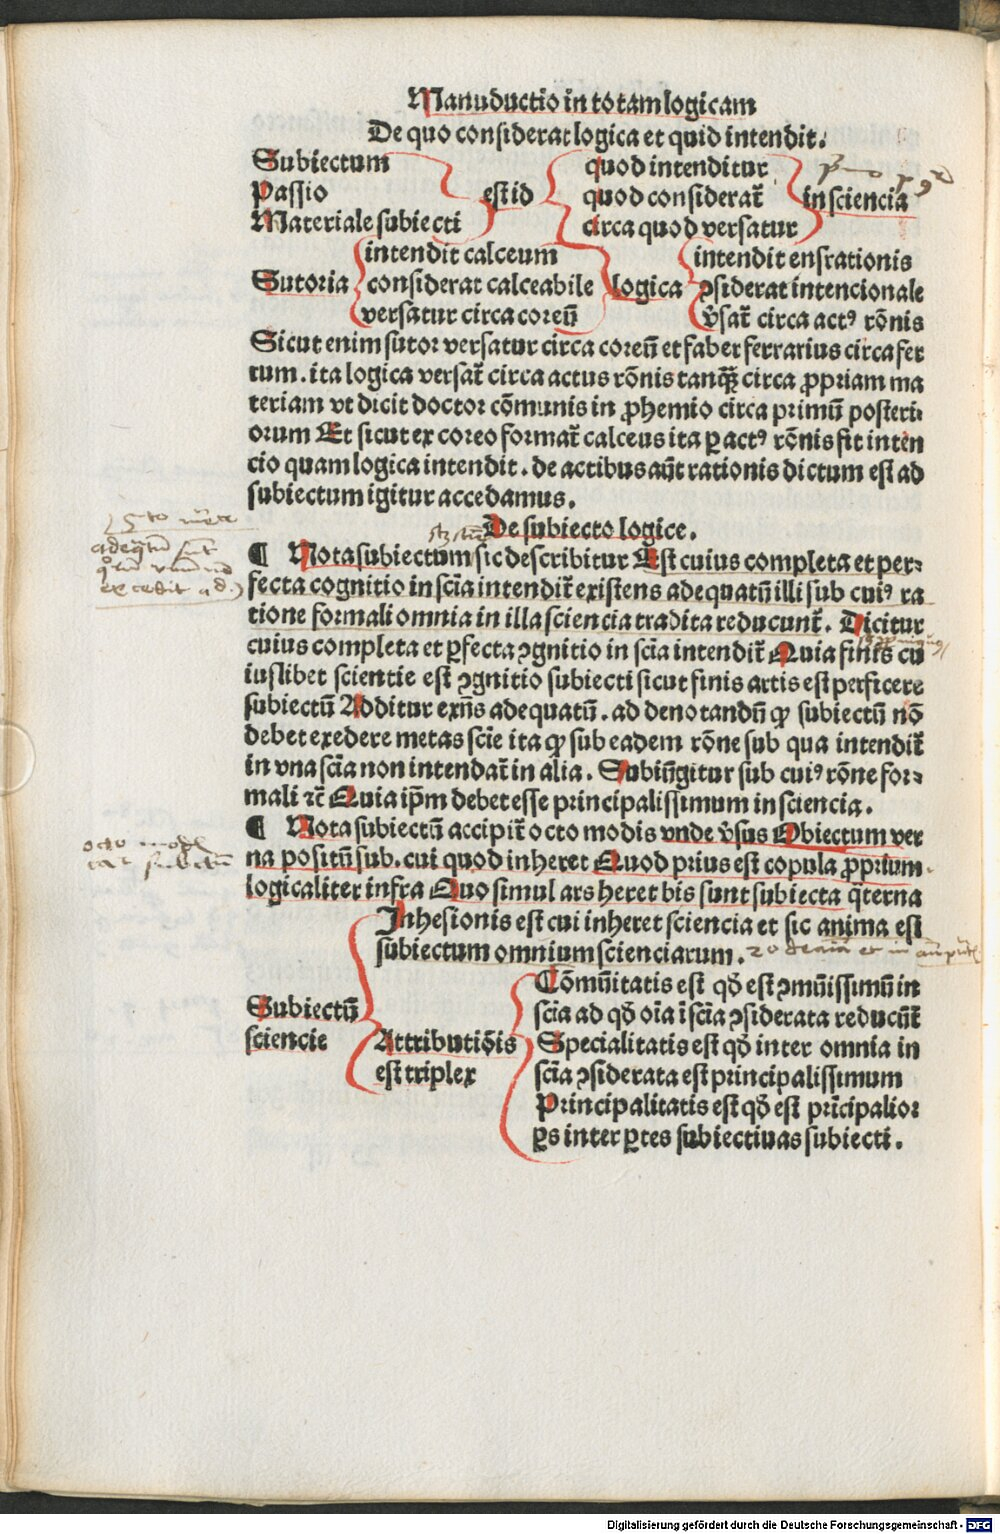 Manuductio in totam logicam
De quo considerat logica et quid intendit.
Subiectum
Passio
Materiale subiecti
est id
quod intenditur
quod considerat̃
circa quod versatur
in sciencia
Sutoria
intendit calceum
considerat calceabile
versatur circa coreū
logica
intendit ens rationis
ꝯsiderat intencionale
v̉sat̃ circa actꝰ rōnis
Sicut enim sutor versatur circa coreū et faber ferrarius circa fer
rum. ita logica versat̃ circa actus rōnis tanꝗ̄ circa ꝓpriam ma
teriam vt dicit doctor cōmunis in ꝓhemio circa primū posteri-
orum Et sicut ex coreo format̃ calceus ita ꝑ actꝰ rōnis fit inten
cio quam logica intendit. de actibus aūt rationis dictum est ad
subiectum igitur accedamus.
De subiecto logice.
¶ Nota subiectum sic describitur Est cuius completa et per-
fecta cognitio in scīa intendit̃ existens adequatū illi sub cuiꝰ ra
tione formali omnia in illa sciencia tradita reducunt̃. Dicitur
cuius completa et ꝑfecta ꝯgnitio in scīa intendit̃ Quia finis cu
iuslibet scientie est ꝯgnitio subiecti sicut finis artis est perficere
subiectū Additur exn̄s adequatū. ad denotandū ꝙ subiectū nō
debet exedere metas scīe ita ꝙ sub eadem rōne sub qua intendit̃
in vna scīa non intendat̃ in alia. Subiūgitur sub cuiꝰ rōne for-
mali ⁊c̄ Quia ip̄m debet esse principalissimum in sciencia.
¶ Nota subiectū accipit̃ octo modis vnde v̉sus Obiectum ver
na positū sub. cui quod inheret Quod prius est copula ꝓprium
logicaliter infra Quo simul ars heret bis sunt subiecta q̄terna
octo mod
Subiectū
sciencie
Inhesionis est cui inheret sciencia et sic anima est
subiectum omnium scienciarum.
Attributiōis
est triplex
Cōmūitatis est qđ est ꝯmūissimū in
scīa ad qđ oīa ī scīa ꝯsiderata reducūt̃
Specialitatis est qđ inter omnia in
scīa ꝯsiderata est principalissimum
Principalitatis est qđ est prīcipalior
ꝑs inter ꝑtes subiectiuas subiecti.
Digitalisierung gefördert durch die Deutsche Forschungsgemeinschaft - DFG